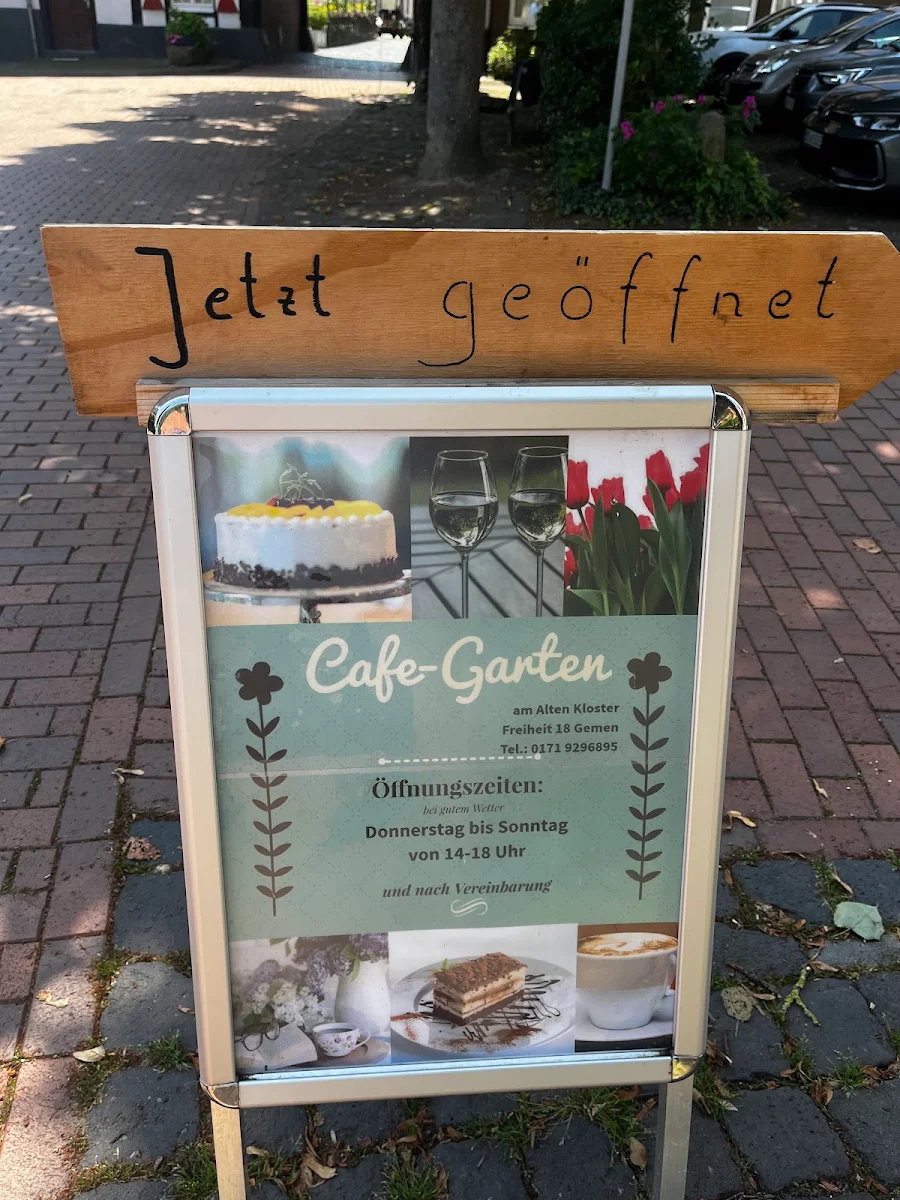 Jetzt geöffnet
Cafe-Garten
am Alten Kloster
Freiheit 18 Gemen
Tel.: 0171 9296895
Öffnungszeiten:
bei gutem Wetter
Donnerstag bis Sonntag
von 14-18 Uhr
und nach Vereinbarung